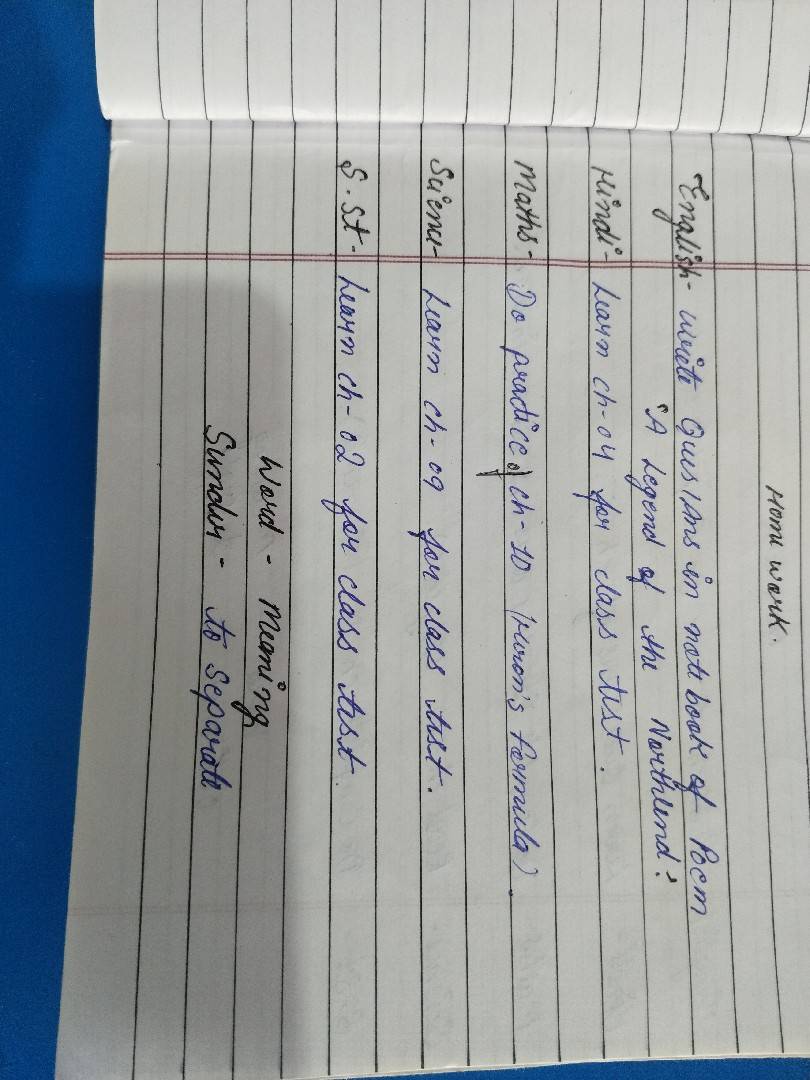 Home work.
English- write Quesians in note book of Poem
"A Legend of the Northlend."
Hindi- Learn ch-04 for class test.
Maths- Do practice of ch-10 (Heron's formula).
Science- Learn ch-09 for class test.
S.St- Learn ch-02 for class test.
Word - Meaning
Sunder - to separate